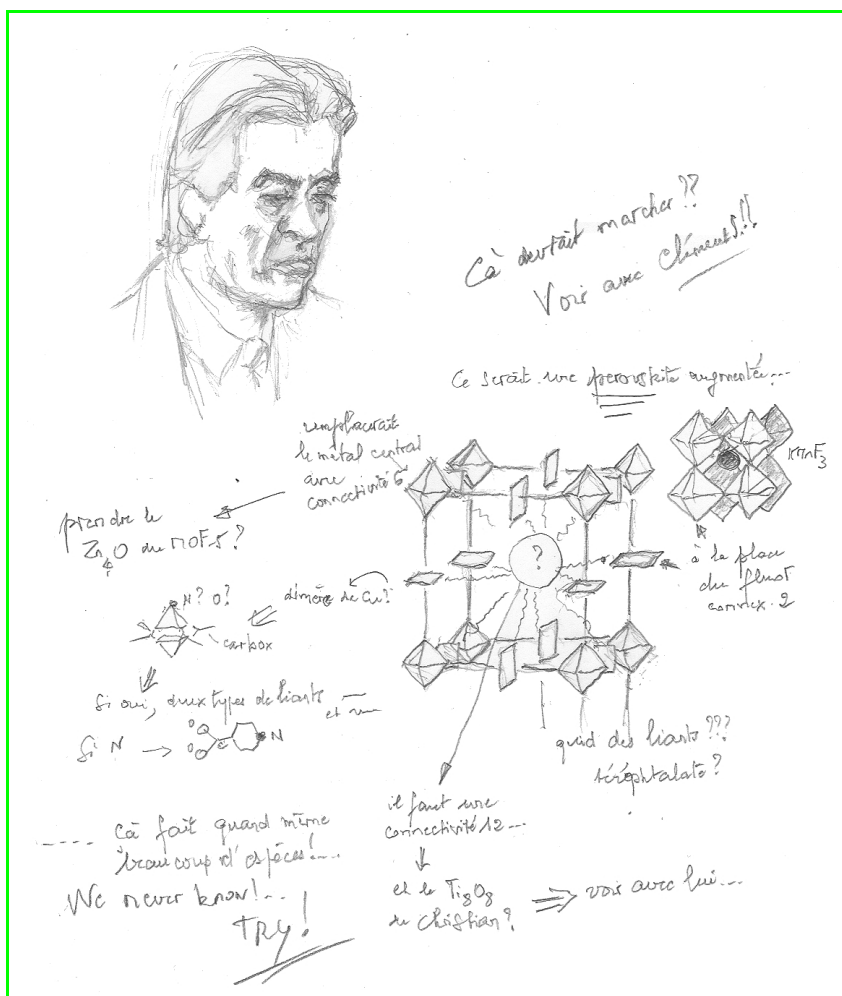 Cà devrait marcher??
Voir avec Clément S!!
Ce serait une perovskite augmentée...
remplacerait
le métal central
avec
connectivité 6
KMnF3
prendre le
Zn4O du MOF5?
?
à la place
du fluor
connex. 2
dimère de Cu?
N? O?
carbox
Si oui, deux types de liants
et
Si N → O O C N
quid des liants???
téréphtalate?
il faut une
connectivité 12...
et le Ti8O8
de Christian?
⇒ voir avec lui...
---- Cà fait quand même
beaucoup d'espèces!...
We never know!...
TRY!